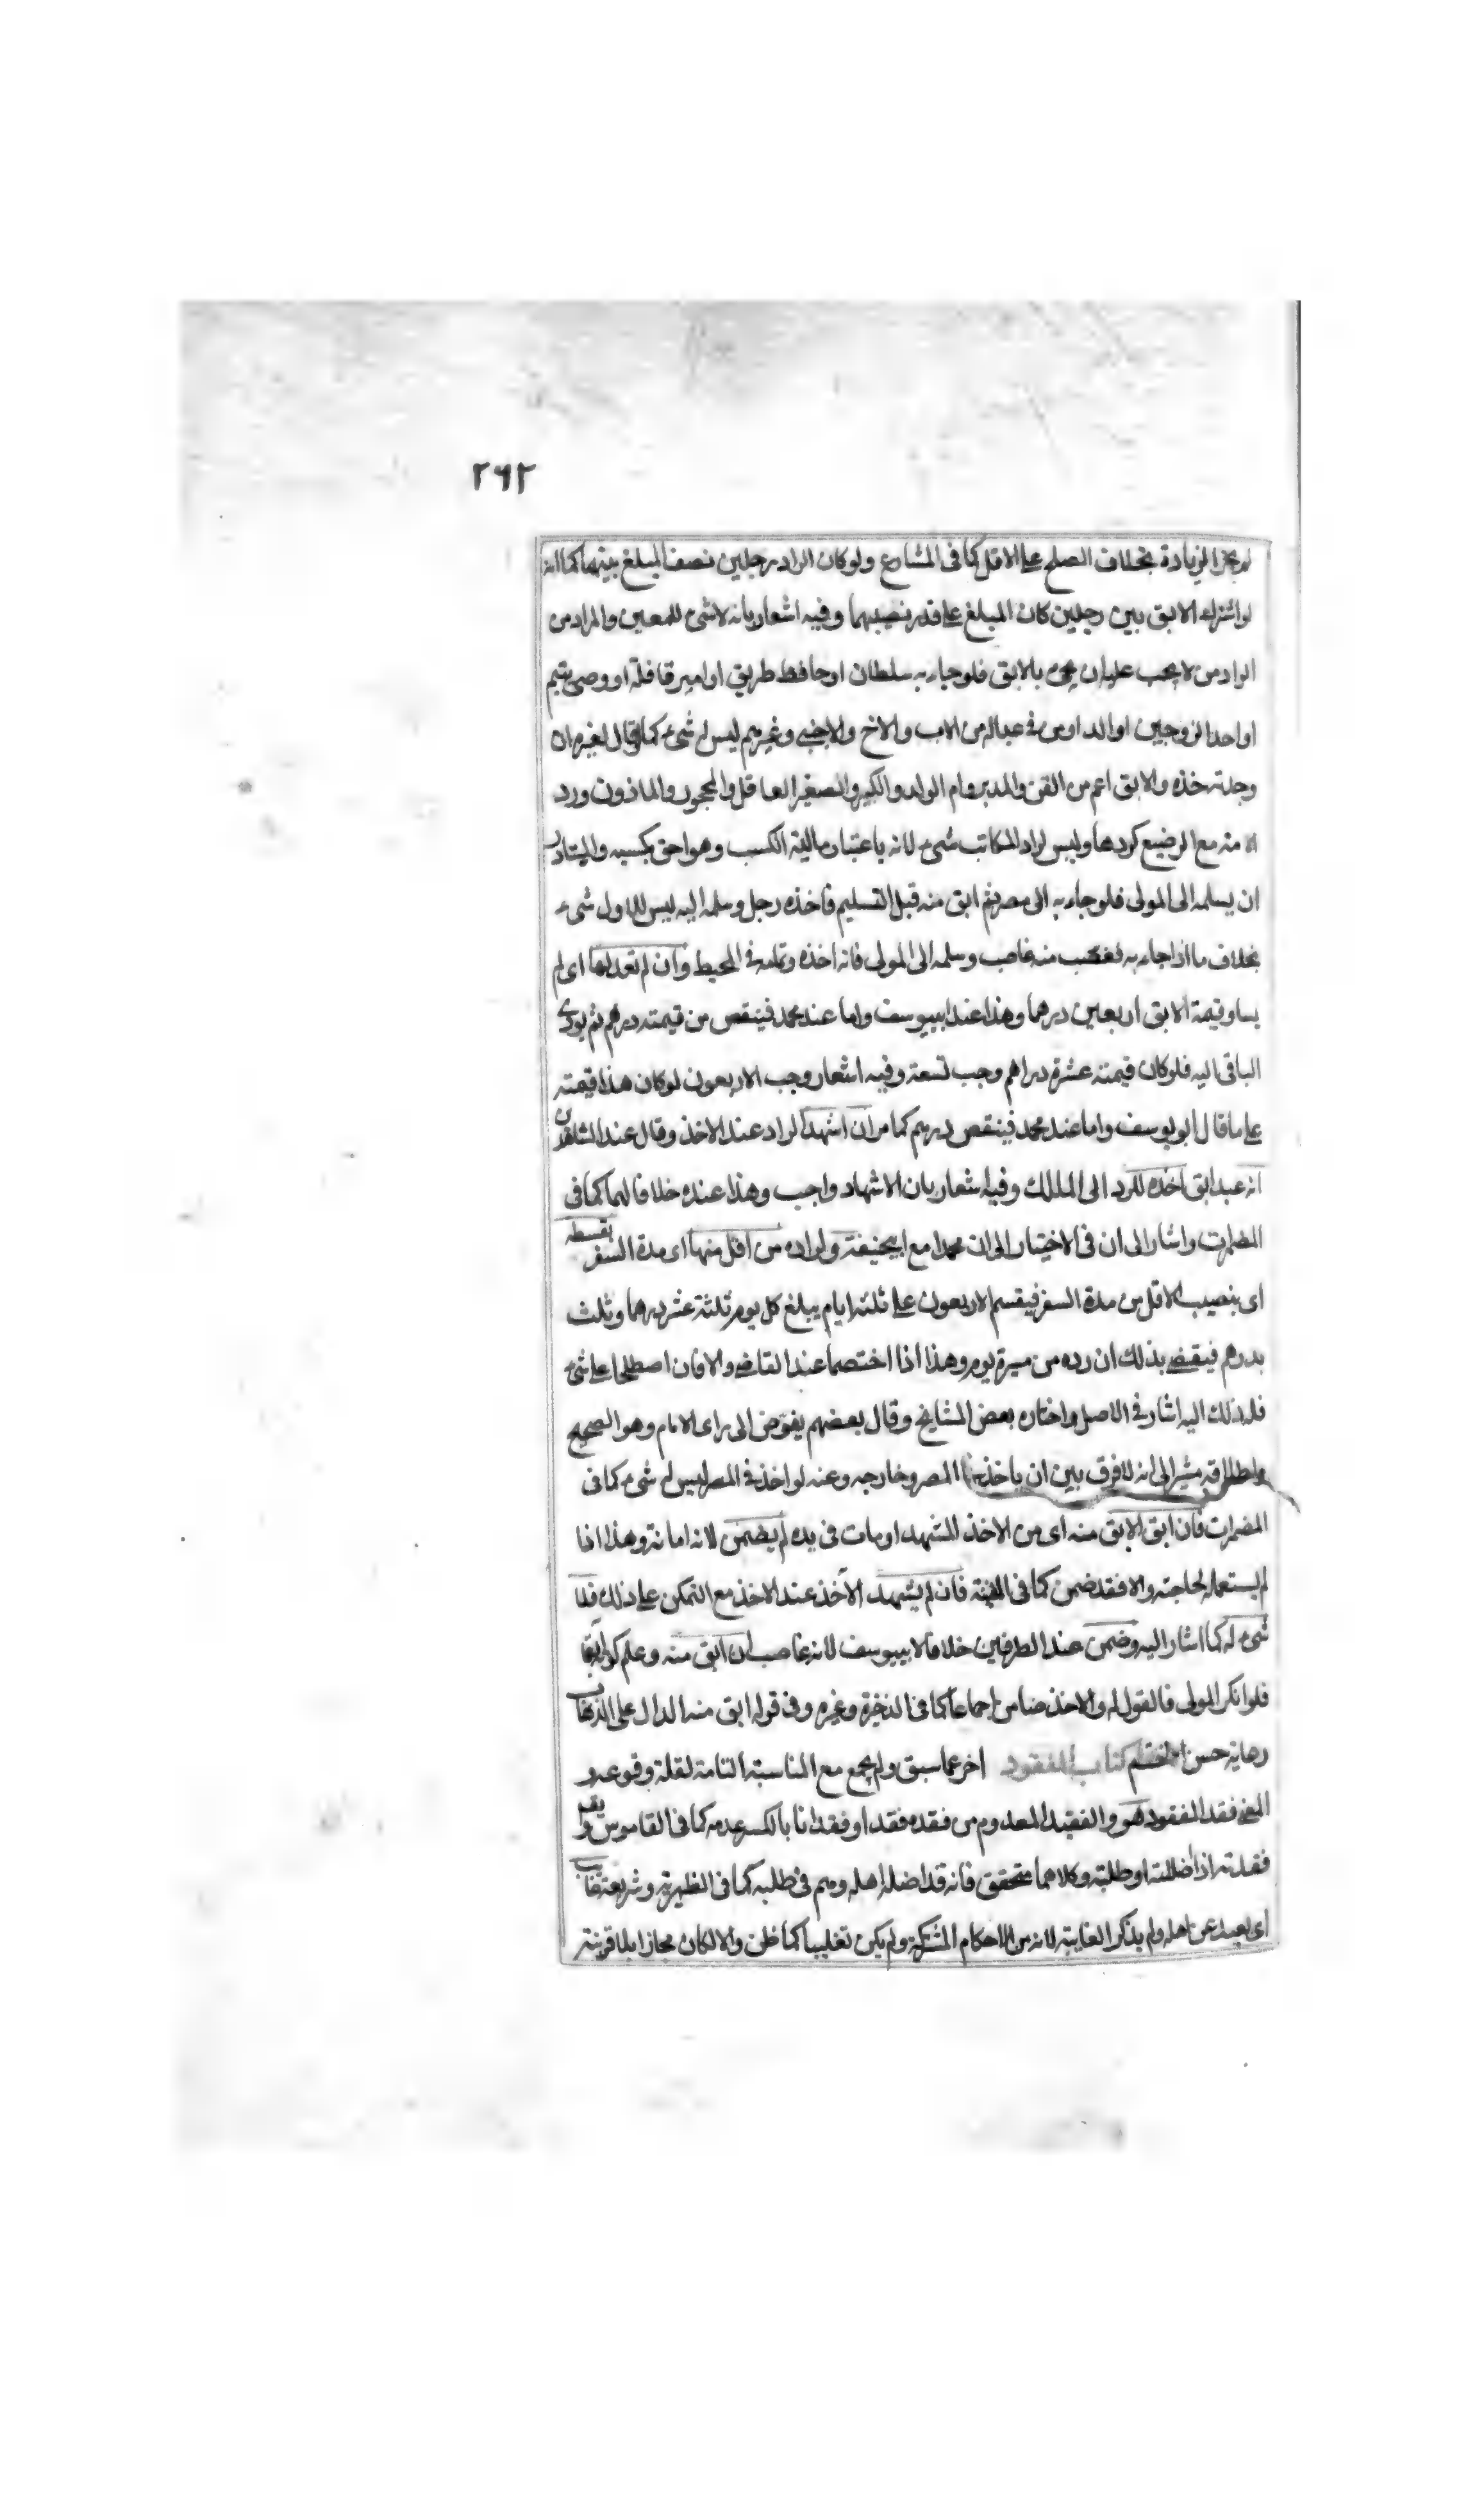 ٢٦٢
لم يجز الزيادة بخلاف الصلح على الاقل كما فى المشارع ولو كان الراد رجلين نصف المبلغ بينهما كما انه
لو اشترك الابق بين رجلين كان المبلغ على قدر نصيبهما وفيه اشعار بانه لا شئ للمعين والمراد من
الراد من لا يجب عليه ان يجئ بالابق فلو جاء به سلطان او حافظ طريق او امير قافلة او وصى يتيم
او احد الزوجين او الولد او من فى عياله من الاب والاخ والاجنبى وغيرهم ليس له شئ كما لو قال لغيره ان
وجدته خذه والابق اعم من القن والمدبر وام الولد والكبير والصغير العاقل والمحجور والماذون ورد
الامة مع الرضيع كردها وليس لراد المكاتب شئ لانه باعتبار مالية الكسب وهو احق بكسبه والمتبادر
ان يسلمه الى المولى فلو جاء به الى مصر ثم ابق منه قبل التسليم فاخذه رجل وسلمه اليه ليس للاول شئ
بخلاف ما اذا جاء به فغصب منه غاصب وسلمه الى المولى فانه اخذه وتمامه فى المحيط وان لم تعدلها اى لم
يساو قيمة الابق اربعين درهما وهذا عند ابيوسف واما عند محمد فينقص من قيمته درهم ثم يودى
الباقى اليه فلو كان قيمته عشرة دراهم وجب تسعة وفيه اشعار وجب الاربعون لو كان هذا قيمته
على ما قال ابو يوسف واما عند محمد فينقص درهم كما مر ان اشهد الراد عند الاخذ وقال عند الشاهدين
انه عبد ابق اخذه للرد الى المالك وفيه اشعار بان الاشهاد واجب وهذا عنده خلافا لهما كما فى
المضمرات واشار الى ان فى الاختيار الى ان محمدا مع ابيحنيفة ولراده من اقل منها اى مدة السفر بقسطه
اى بنصيب الاقل من مدة السفر فيقسم الاربعون على ثلثة ايام يبلغ كل يوم ثلثة عشر درهما وثلث
درهم فيقضى بذلك ان رده من مسيرة يوم وهذا اذا اختصما عند القاضى والا فان اصطلحا على شئ
فله ذلك اليه اشار فى الاصل واختاره بعض المشايخ وقال بعضهم يفوض الى راى الامام وهو الصحيح
واطلاقه مشير الى انه لا فرق بين ان ياخذه المصر وخارجه وعنه لو اخذ فى المصر ليس له شئ كما فى
المضمرات فان ابق الابق منه اى من الاخذ المشهد او مات فى يده لم يضمن لانه امانة وهذا اذا
لم يستعمله لحاجته والا فقد ضمن كما فى فان لم يشهد الآخذ عند الاخذ مع التمكن على ذلك فلا
شئ له كما اشار اليه وضمن عند الطرفين خلافا لابيوسف لانه غاصب ان ابق منه وعلم كونه آبقا
فلو انكر المولى فالقول له والاخذ ضامن اجماعا كما فى الذخيرة وغيره وفى قوله ابق منه الدال على الذهاب
رعاية حسن الختم كتاب المفقود اخر عما سبق ولم يجمع مع المناسبة التامة لقلة وقوعه و
فقد المفقود هو والفقيد المعدوم من فقده فقدا وفقدانا بالكسر عدمه كما فى القاموس و
فقدته اذا اضللته او طلبته وكلاهما متحقق فانه قد اضله اهله وهم فى طلبه كما فى الظهيرية وشريعة غائب
اى بعيد عن اهله ولم يذكر الغائبة لانه من الاحكام المشتركة ولم يكن تغليبا كما ظن والا لكان مجازا بلا قرينة